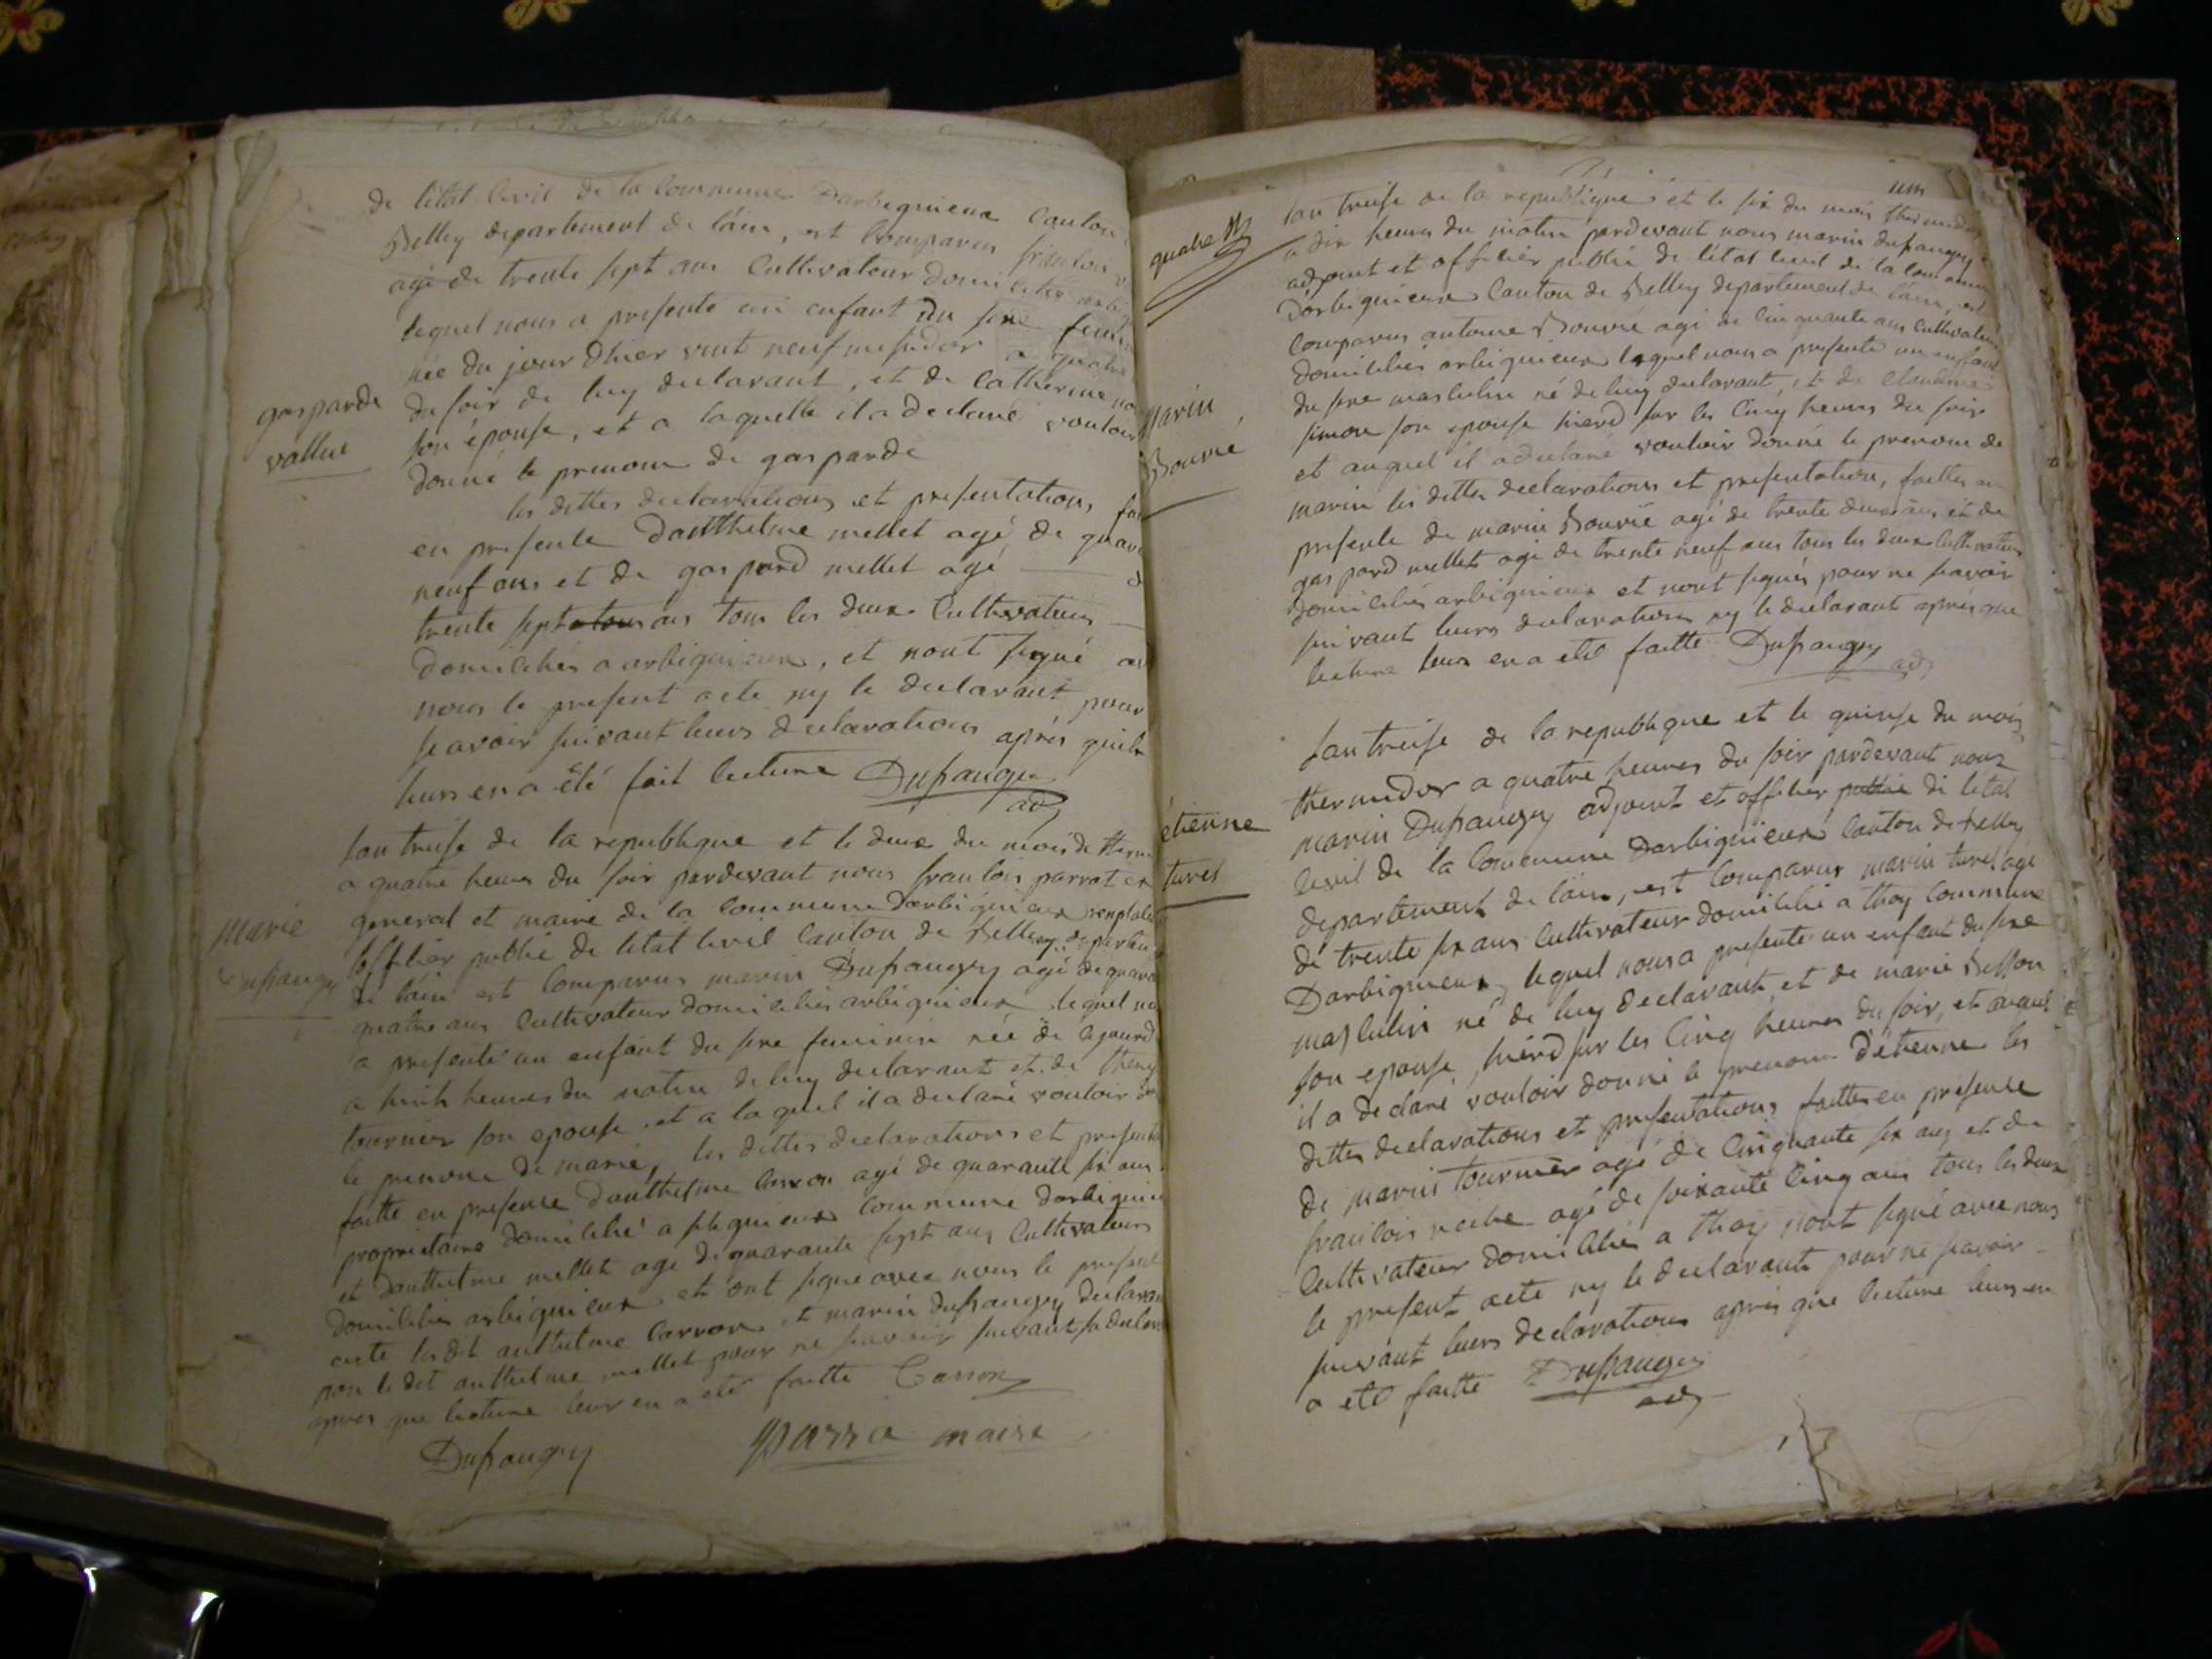 de létat Civil de la Commune Darbignieux Canton
Belley département de lain, est Comparus francois
agé de trente sept ans Cultivateur domicilies arbig
lequel nous a presenté un enfant du sexe femin
née du jour Dhier vint neuf mesidor a quatre
du soir de luy declarant, et de Catherine
son épouse, et a laquelle il a declaré vouloir
donné le prenom de gasparde
gasparde
vallue
les dittes declarations et presentations fai
en presente Danthelme mellet agé de quara
neuf ans et de gaspard mellet agé d
trente sept ans tous les deux Cultivateurs
domiciliés a arbignieux, et nont signé av
nous le present acte ny le declarant pour
scavoir suivant leurs declarations aprés quil
leurs en a été fait lecture Dufraugey
adj
lan treise de la republique et le deux du mois de therm
a quatre heures du soir pardevant nous francois parrat
general et maire de la commune Darbignieux remplac
lofficier public de létat Civil Canton de Belley departem
de lain est Comparus marin Dufraugey agé de quara
quatre ans Cultivateur domicilies arbignieux lequel no
a presenté un enfant du sexe feminin née de cejourd
a huit heures du matin de luy declarant et de
tournier son epouse, et a laquel il a declaré vouloir
le prenom de marie, les dittes declarations et presenta
faitte en presence Danthelme Carron agé de quarante six ans
propriétaire domicilié a commune Darbignie
et Danthelme mellet agé de quarante sept ans Cultivateurs
domicilies arbignieux et ont signé avec nous le present
acte ledit anthelme Carron et marin dufraugey declaran
non le dit anthelme mellet pour ne scavoir suivant sa declara
apres que lecture leur en a eté faitte Carron
Dufraugey parra maire
marie
dufraugey
quatre
lan treise de la republique et le six du mois thermidor
a dix heures du matin pardevant nous marin dufraugey
adjoint et officier public de l'état civil de la commune
Darbignieux Canton de Belley departement de lain, est
Comparus antoine Bouvié agé de cinquante ans Cultivateur
domiciliés arbignieux lequel nous a presenté un enfant
du sexe masculin né de luy declarant, et de Claudine
simon son epouse hierd sur les Cinq heures du soir
et auquel il a declaré vouloir donné le prenom de
marin les dittes declarations et presentations, faittes en
presente de marin Bouvié agé de trente deux ans et de
gaspard mellet agé de trente neuf ans tous les deux Cultivateurs
domiciliés arbignieux et nont signés pour ne scavoir
suivant leurs declarations ny le declarant aprés que
lecture leurs en a eté faitte Dufraugey
adj
Marin
Bouvié
lan treise de la republique et le quinse du mois
thermidor a quatre heures du soir pardevant nous
marin Dufraugey adjoint et officier public de létat
Civil de la Commune Darbignieux Canton de Belley
departement de lain, est Comparus marin turel agé
de trente six ans Cultivateur domicilié a thoy Commune
Darbignieux lequel nous a presenté un enfant du sexe
masculin né de luy declarant, et de marie Besson
son epouse, hierd sur les Cinq heures du soir, et auquel
il a declaré vouloir donné le prenom détienne les
dittes declarations et presentations faittes en presence
de marin tournier agé de Cinquante six ans et de
francois agé de soixante Cinq ans tous les deux
Cultivateur domicilies a thoy nont signé avec nous
le present acte ny le declarant pour ne scavoir
suivant leurs declarations aprés que lecture leurs en
a eté faitte Dufraugey
adj
étienne
turel